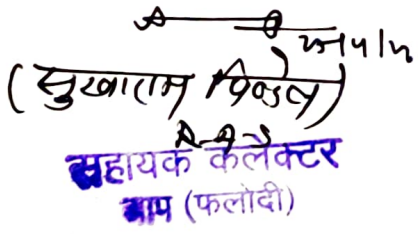 (सुखाराम पिण्डेल)
सहायक कलेक्टर
बाप (फलोदी)